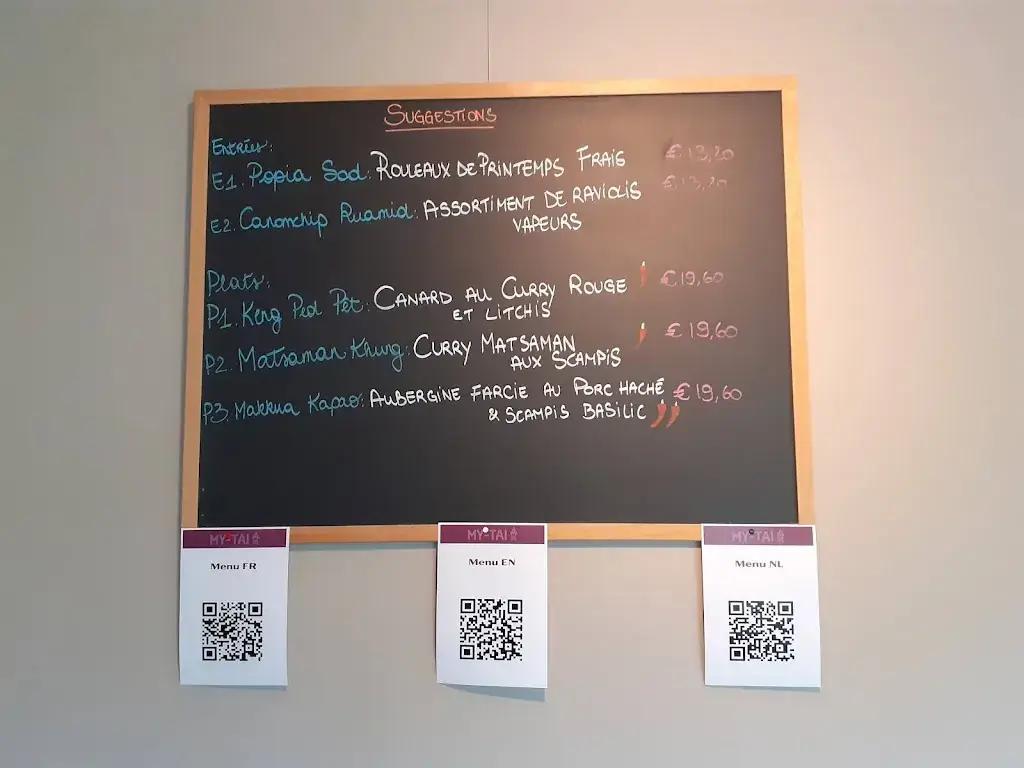 SUGGESTIONS
Entrées:
E1. Popia Sod: ROULEAUX DE PRINTEMPS FRAIS € 13,20
E2. Canomchip Ruamid: ASSORTIMENT DE RAVIOLIS € 13,20
VAPEURS
Plats:
P1. Keng Ped Pèt: CANARD AU CURRY ROUGE € 19,60
ET LITCHIS
P2. Matsaman Khung: CURRY MATSAMAN € 19,60
AUX SCAMPIS
P3. Makkua Kapao: AUBERGINE FARCIE AU PORC HACHÉ € 19,60
& SCAMPIS BASILIC
MY-TAI
Menu FR
MY-TAI
Menu EN
MY-TAI
Menu NL